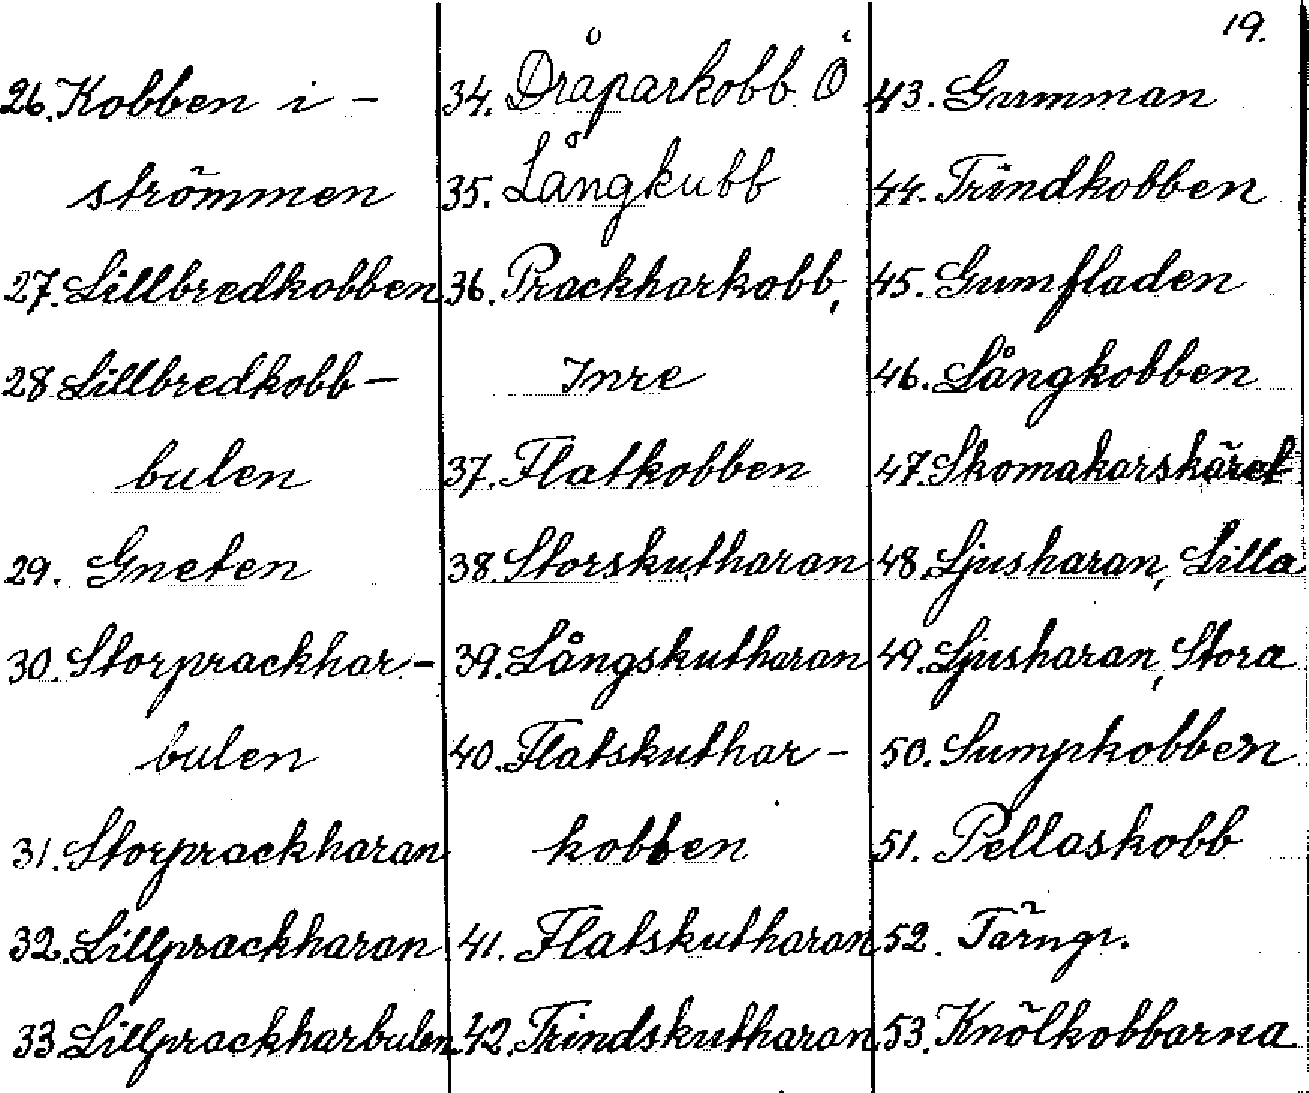 19.
26. Kobben i -
strömmen
27. Lillbredkobben
28 Lillbredkobb-
bulen
29. Gneten
30. Storprackhar-
bulen
31. Storprackharan
32. Lillprackharan
33. Lillprackharbulen
34. Dråparkobb. Ö
35. Långkubb
36. Prackharkobb,
Inre
37. Flatkobben
38. Storskutharan
39. Långskutharan
40. Flatskuthar-
kobben
41. Flatskutharan
42. Trindskutharan
43. Gumman
44. Trindkobben
45. Gumfladen
46. Långkobben
47. Skomakarskäret
48. Ljusharan, Lilla
49. Ljusharan, Stora
50. Sumpkobben
51. Pellaskobb
52. Tärngr.
53. Knölkobbarna